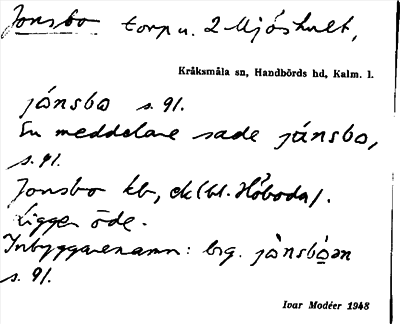 Jonsbo torp u. 2 Mjöshult,
Kråksmåla sn, Handbörds hd, Kalm. l.
jónsbo s. 91.
En meddelare sade jánsbo,
s. 91.
Jonsbo kb, ek (bl. Höboda).
Ligger öde.
Inbyggarenamn: brg. jònsbóan
s. 91.
Ivar Modéer 1948